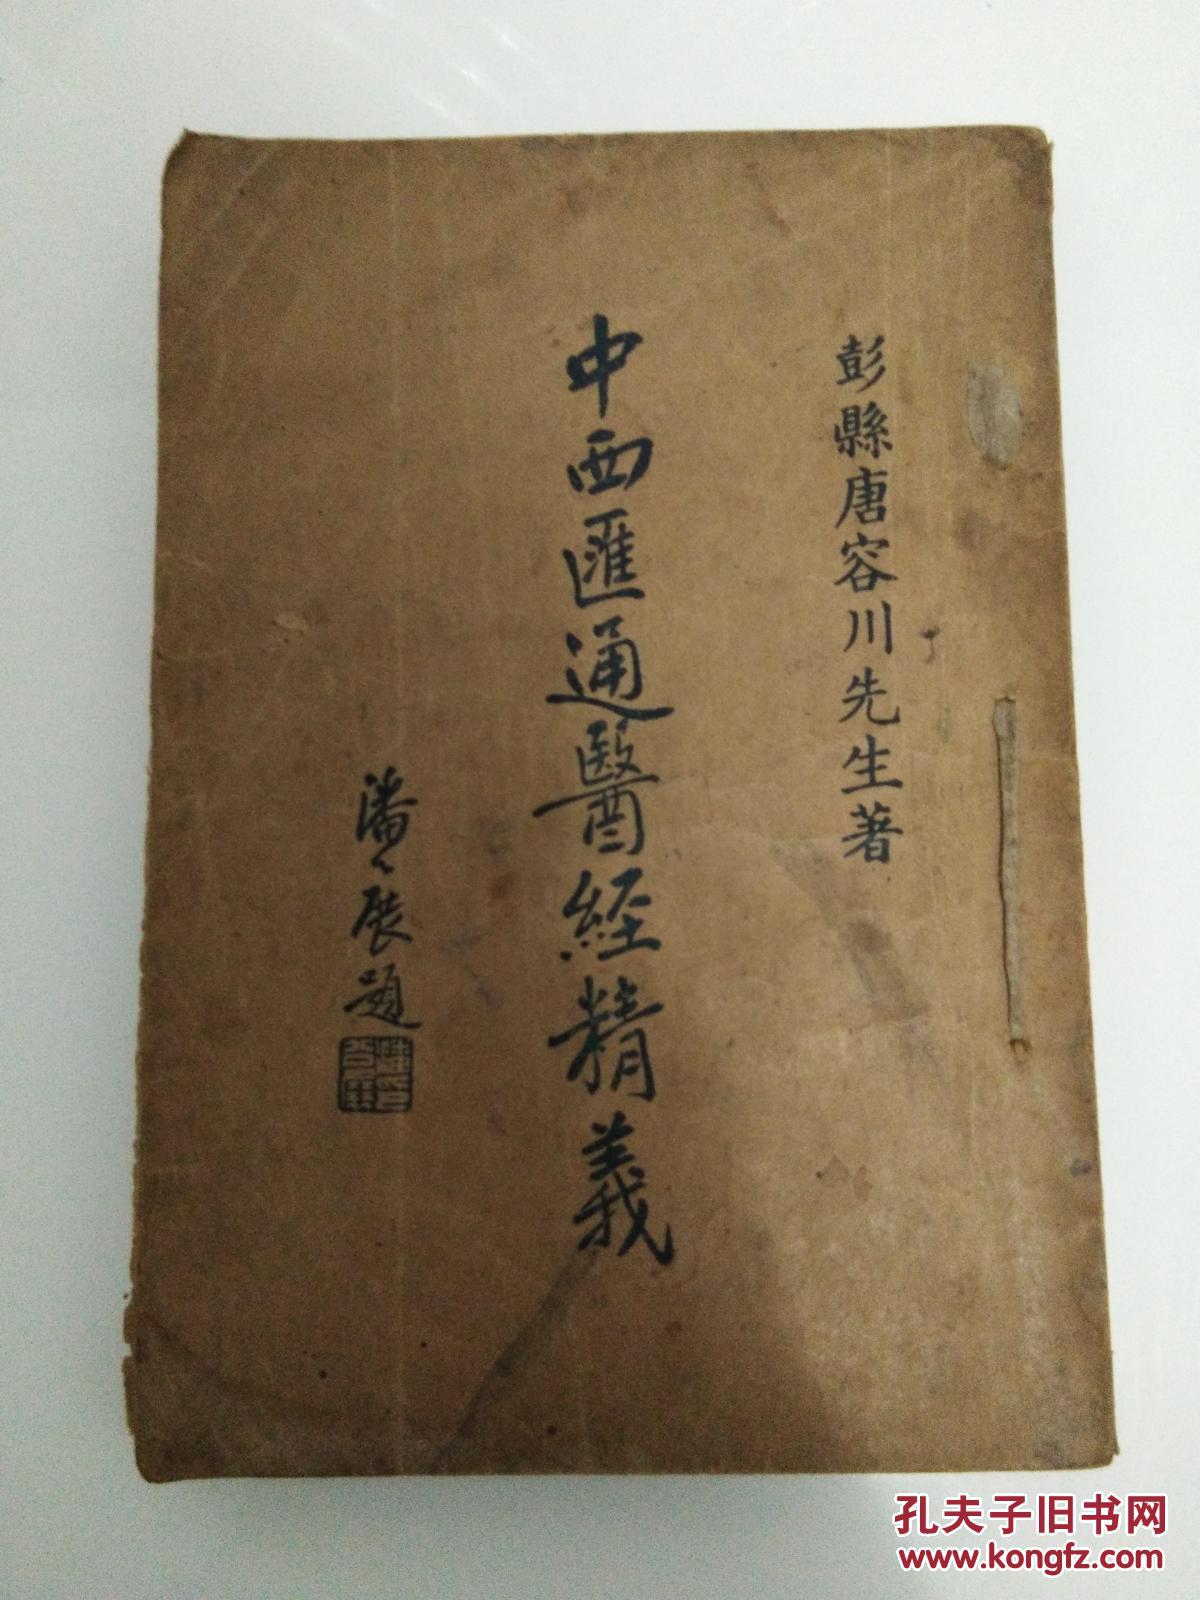 彭縣唐容川先生著
中西匯通醫經精義
潘公展題
孔夫子旧书网
www.kongfz.com